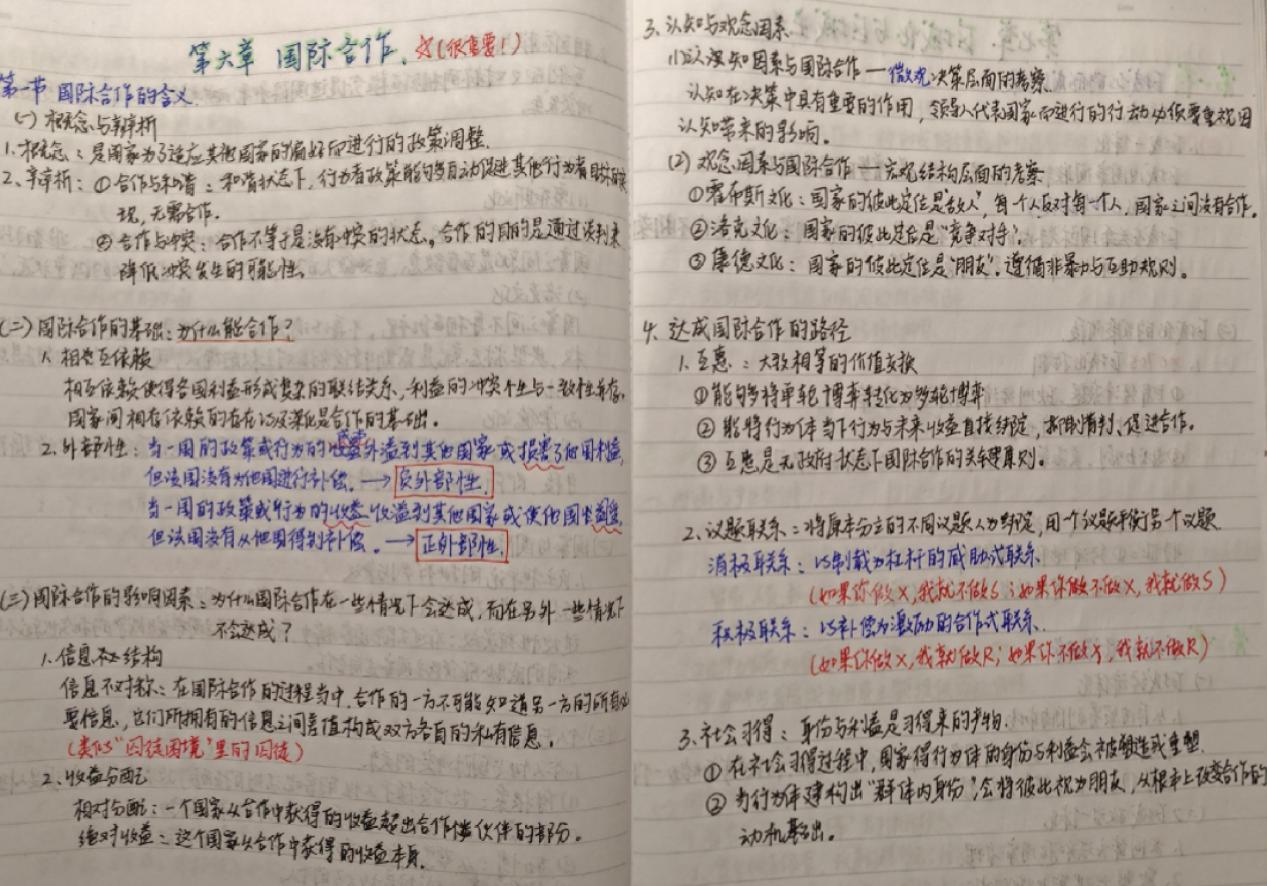 第六章 国际合作. ☆(很重要!)
第一节 国际合作的含义
(一) 概念与辩析
1. 概念:是国家为了适应其他国家的偏好而进行的政策调整.
2. 辛辩析:①合作与和谐:和谐状态下,行为者政策能够自动促进其他行为者目标的实
现,无需合作.
②合作与冲突:合作不等于是没有冲突的状态。合作的目的是通过谈判来
降低冲突发生的可能性.
(二) 国际合作的基础:为什么能合作?
1. 相互依赖
相互依赖使得各国利益形成复杂的联结关系,利益的冲突性与一致性并存,
国家间相存依赖的存在以及深化是合作的基础.
2. 外部性:当一国的政策或行为的外溢到其他国家或损害了他国利益,
但该国没有为他国进行补偿. → 负外部性.
当一国的政策或行为的收益收溢到其他国家或使他国受益,
但该国没有从他国得到补偿. → 正外部性.
(三) 国际合作的影响因素:为什么国际合作在一些情况下会达成,而在另外一些情况下
不会达成?
1. 信息结构
信息不对称:在国际合作的过程当中,合作的一方不可能知道另一方的所有必
要信息,它们所拥有的信息之间差值构成双方各自的私有信息。
(类似"囚徒困境"里的囚徒)
2. 收益分配
相对分配:一个国家从合作中获得的收益超出合作伙伴的部分。
绝对收益:这个国家从合作中获得的收益本身.
3. 认知与观念因素
(1) 认知因素与国际合作——微观决策层面的考察.
认知在决策中具有重要的作用,领导人代表国家而进行的行动必须要重视因
认知带来的影响.
(2) 观念因素与国际合作——宏观结构层面的考察
①霍布斯文化:国家的彼此定位是"敌人",每一个人反对每一个人,国家之间没有合作.
②洛克文化:国家的彼此定位是"竞争对手".
③康德文化:国家的彼此定位是"朋友",遵循非暴力与互助规则。
4. 达成国际合作的路径
1. 互惠:大致相等的价值交换
①能够将单轮博弈转化为多轮博弈
②能将行为体当下行为与未来收益直接绑定,抑制背判、促进合作。
③互惠是无政府状态下国际合作的关键原则。
2. 议题联系:将原本分立的不同议题人为绑定,用一个议题平衡另一个议题
消极联系:以制裁为杠杆的威胁式联系.
(如果你做X,我就不做S;如果你做不做X,我就做S)
积极联系:以补偿为激励的合作式联系.
(如果你做X,我就做R;如果你不做X,我就不做R)
3. 社会习得:身份与利益是习得来的产物.
①在社会习得过程中,国家得行为体的身份与利益会被塑造或重塑.
②当行为体建构出"群体内身份",会将彼此视为朋友,从根本上改变合作的
动机基础.